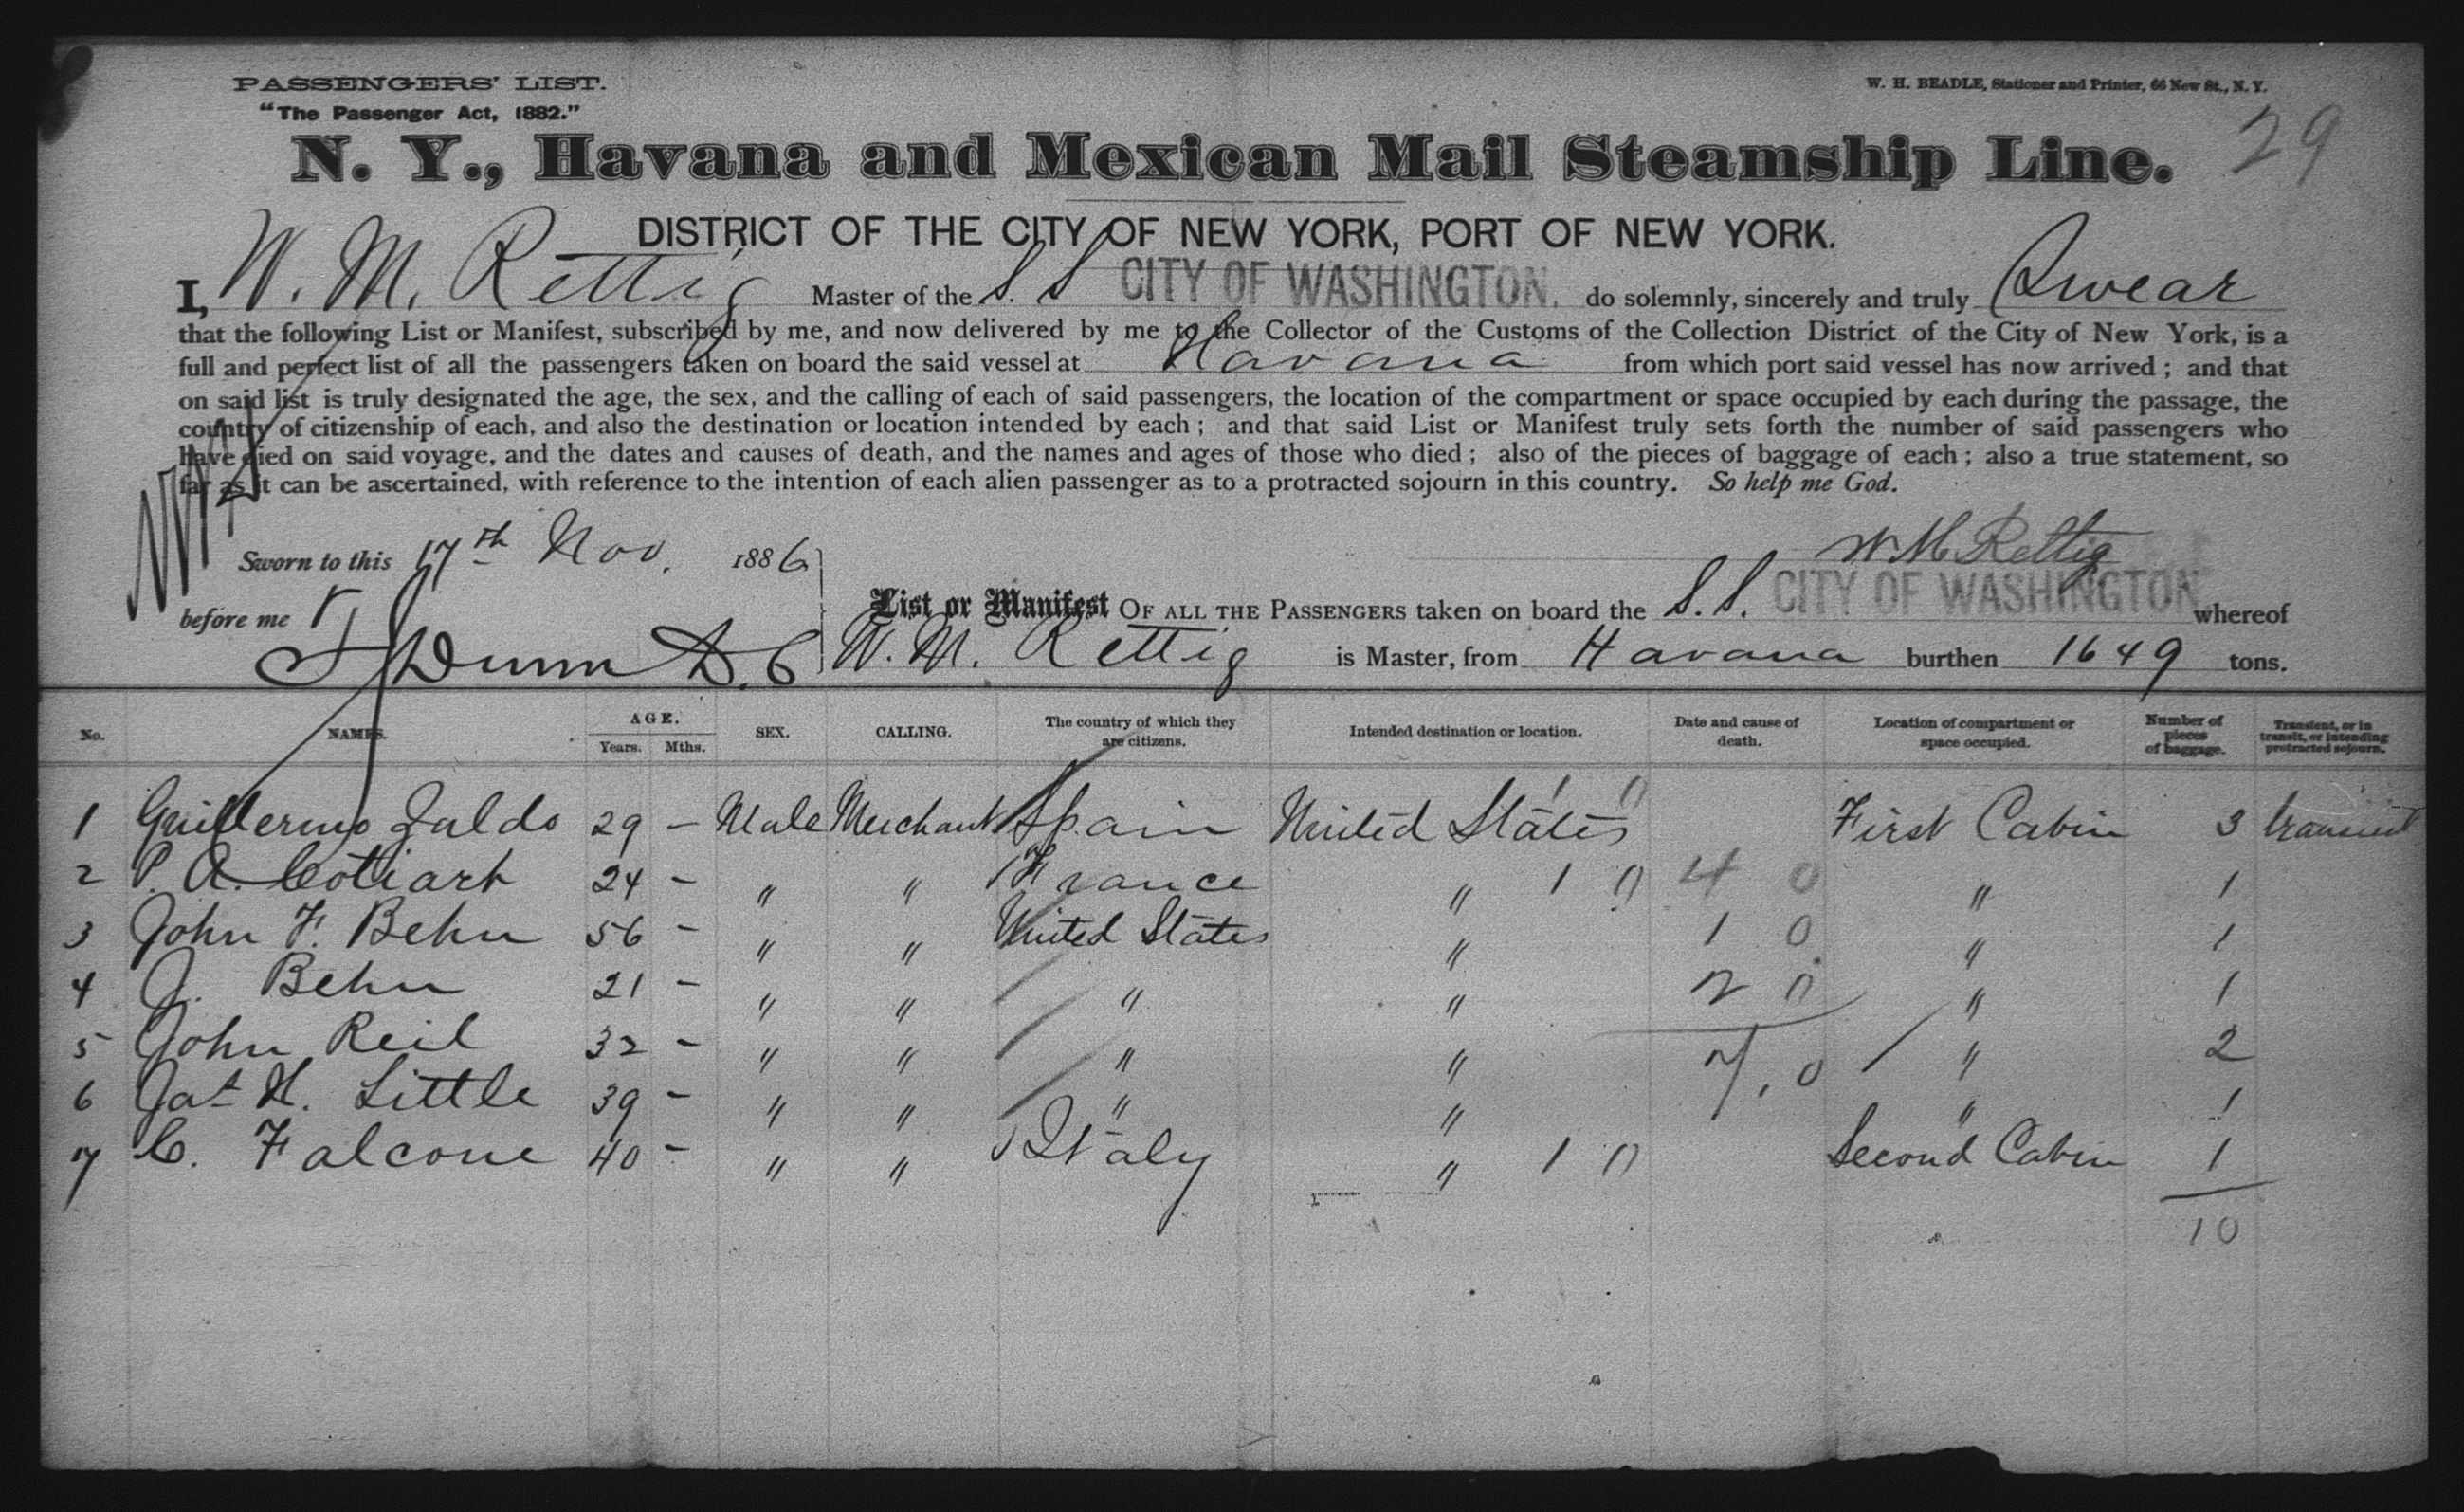 PASSENGERS' LIST.
"The Passenger Act, 1882."
W. H. BEADLE, Stationer and Printer, 66 New St., N. Y.
29
N. Y., Havana and Mexican Mail Steamship Line.
DISTRICT OF THE CITY OF NEW YORK, PORT OF NEW YORK.
I, W. M. Rettig Master of the S. S. CITY OF WASHINGTON. do solemnly, sincerely and truly Swear
that the following List or Manifest, subscribed by me, and now delivered by me to the Collector of the Customs of the Collection District of the City of New York, is a
full and perfect list of all the passengers taken on board the said vessel at Havana from which port said vessel has now arrived ; and that
on said list is truly designated the age, the sex, and the calling of each of said passengers, the location of the compartment or space occupied by each during the passage, the
country of citizenship of each, and also the destination or location intended by each ; and that said List or Manifest truly sets forth the number of said passengers who
have died on said voyage, and the dates and causes of death, and the names and ages of those who died ; also of the pieces of baggage of each ; also a true statement, so
far as it can be ascertained, with reference to the intention of each alien passenger as to a protracted sojourn in this country. So help me God.
Sworn to this 17th Nov. 1886
W M Rettig
before me
List or Manifest OF ALL THE PASSENGERS taken on board the S. S. CITY OF WASHINGTON whereof
Dunn D. C
W. M. Rettig is Master, from Havana burthen 1649 tons.
No. NAMES. AGE. Years. Mths. SEX. CALLING. The country of which they are citizens. Intended destination or location. Date and cause of death. Location of compartment or space occupied. Number of pieces of baggage. Transient, or in transit, or intending protracted sojourn.
1 Guillermo Zaldo 29 - Male Merchant Spain United States 1 0 First Cabin 3 transient
2 P. A. Cotiart 24 - " " France " 1 0 4 0 " 1
3 John F. Behn 56 - " " United States " 1 0 " 1
4 J. Behn 21 - " " " " 2 0 " 1
5 John Reil 32 - " " " " 7, 0 " 2
6 Jas H. Little 39 - " " " " " 1
7 C. Falcone 40 - " " Italy " 1 0 Second Cabin 1
10